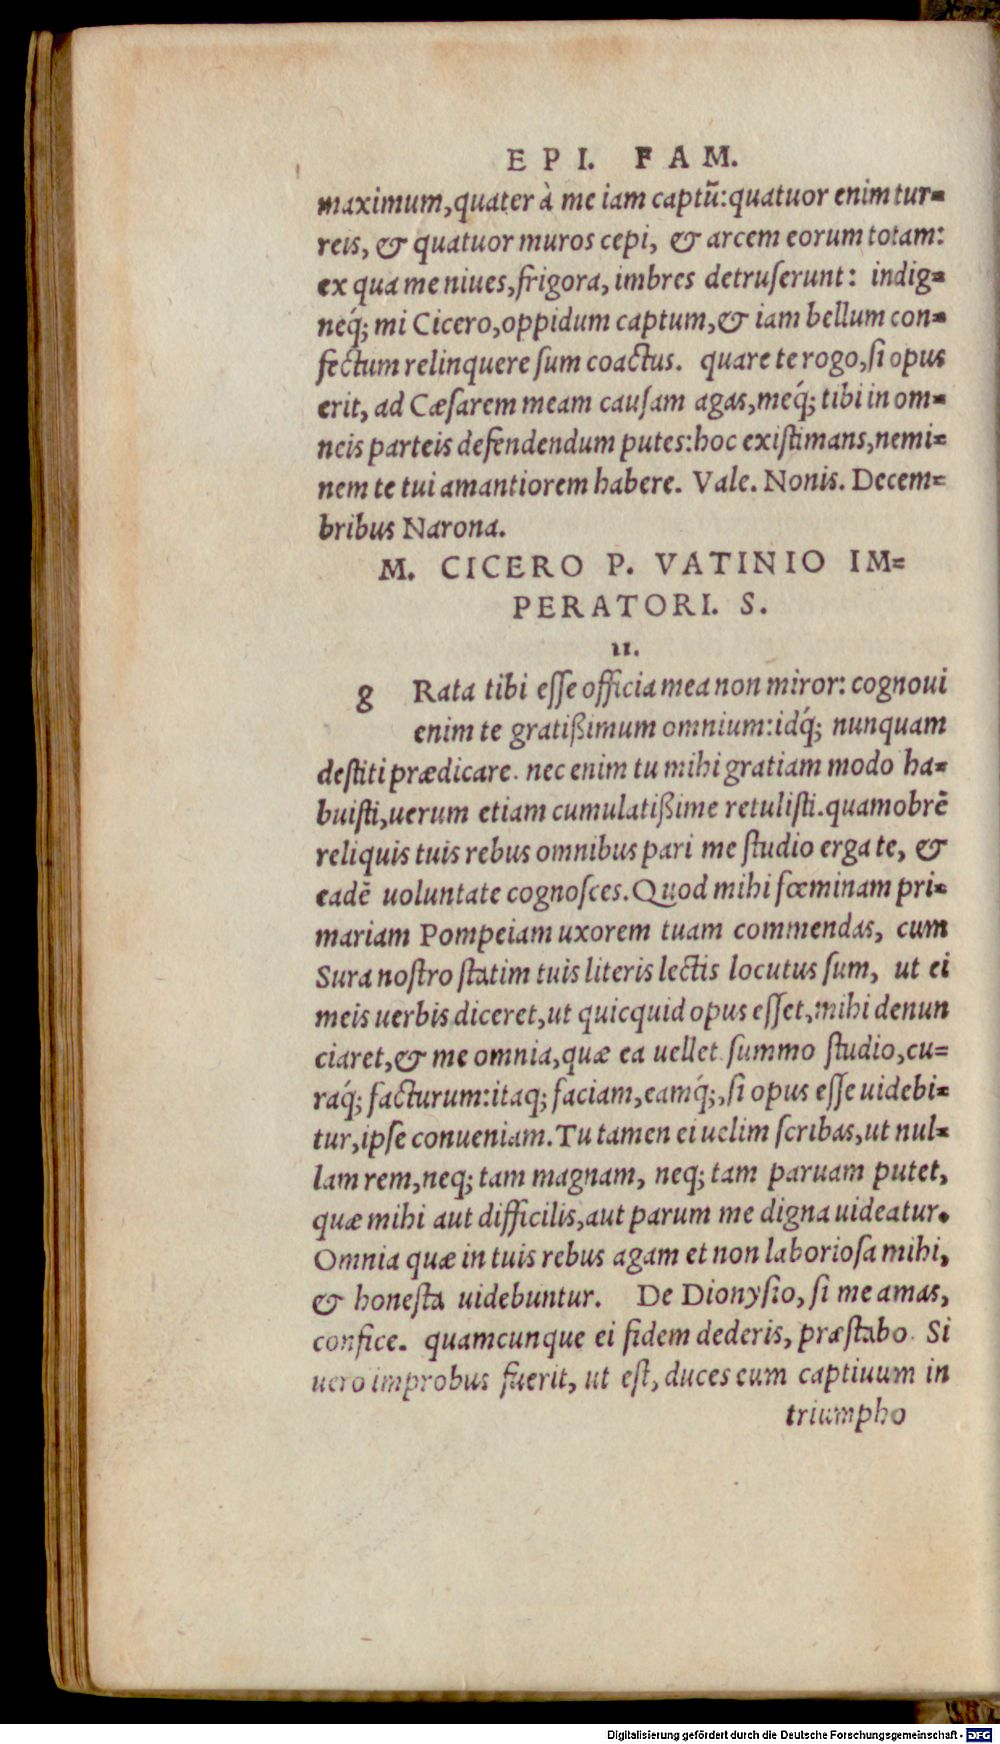 EPI. FAM.
maximum, quater à me iam captũ: quatuor enim tur-
reis, & quatuor muros cepi, & arcem eorum totam:
ex qua me niues, frigora, imbres detruſerunt: indig-
neq́; mi Cicero, oppidum captum, & iam bellum con-
fectum relinquere ſum coactus. quare te rogo, ſi opus
erit, ad Cæſarem meam cauſam agas, meq́; tibi in om-
neis parteis defendendum putes: hoc exiſtimans, nemi-
nem te tui amantiorem habere. Vale. Nonis. Decem-
bribus Narona.
M. CICERO P. VATINIO IM-
PERATORI. S.
II.
g Rata tibi eſſe officia mea non miror: cognoui
enim te gratißimum omnium: idq́; nunquam
deſtiti prædicare. nec enim tu mihi gratiam modo ha-
buiſti, uerum etiam cumulatißime retuliſti. quamobrẽ
reliquis tuis rebus omnibus pari me ſtudio erga te, &
eadẽ uoluntate cognoſces. Quod mihi fœminam pri-
mariam Pompeiam uxorem tuam commendas, cum
Sura noſtro ſtatim tuis literis lectis locutus ſum, ut ei
meis uerbis diceret, ut quicquid opus eſſet, mihi denun
ciaret, & me omnia, quæ ea uellet ſummo ſtudio, cu-
raq́; facturum: itaq; faciam, eamq́;, ſi opus eſſe uidebi-
tur, ipſe conueniam. Tu tamen ei uelim ſcribas, ut nul-
lam rem, neq; tam magnam, neq; tam paruam putet,
quæ mihi aut difficilis, aut parum me digna uideatur.
Omnia quæ in tuis rebus agam et non laborioſa mihi,
& honeſta uidebuntur. De Dionyſio, ſi me amas,
confice. quamcunque ei fidem dederis, præſtabo. Si
uero improbus fuerit, ut eſt, duces eum captiuum in
triumpho
Digitalisierung gefördert durch die Deutsche Forschungsgemeinschaft - DFG